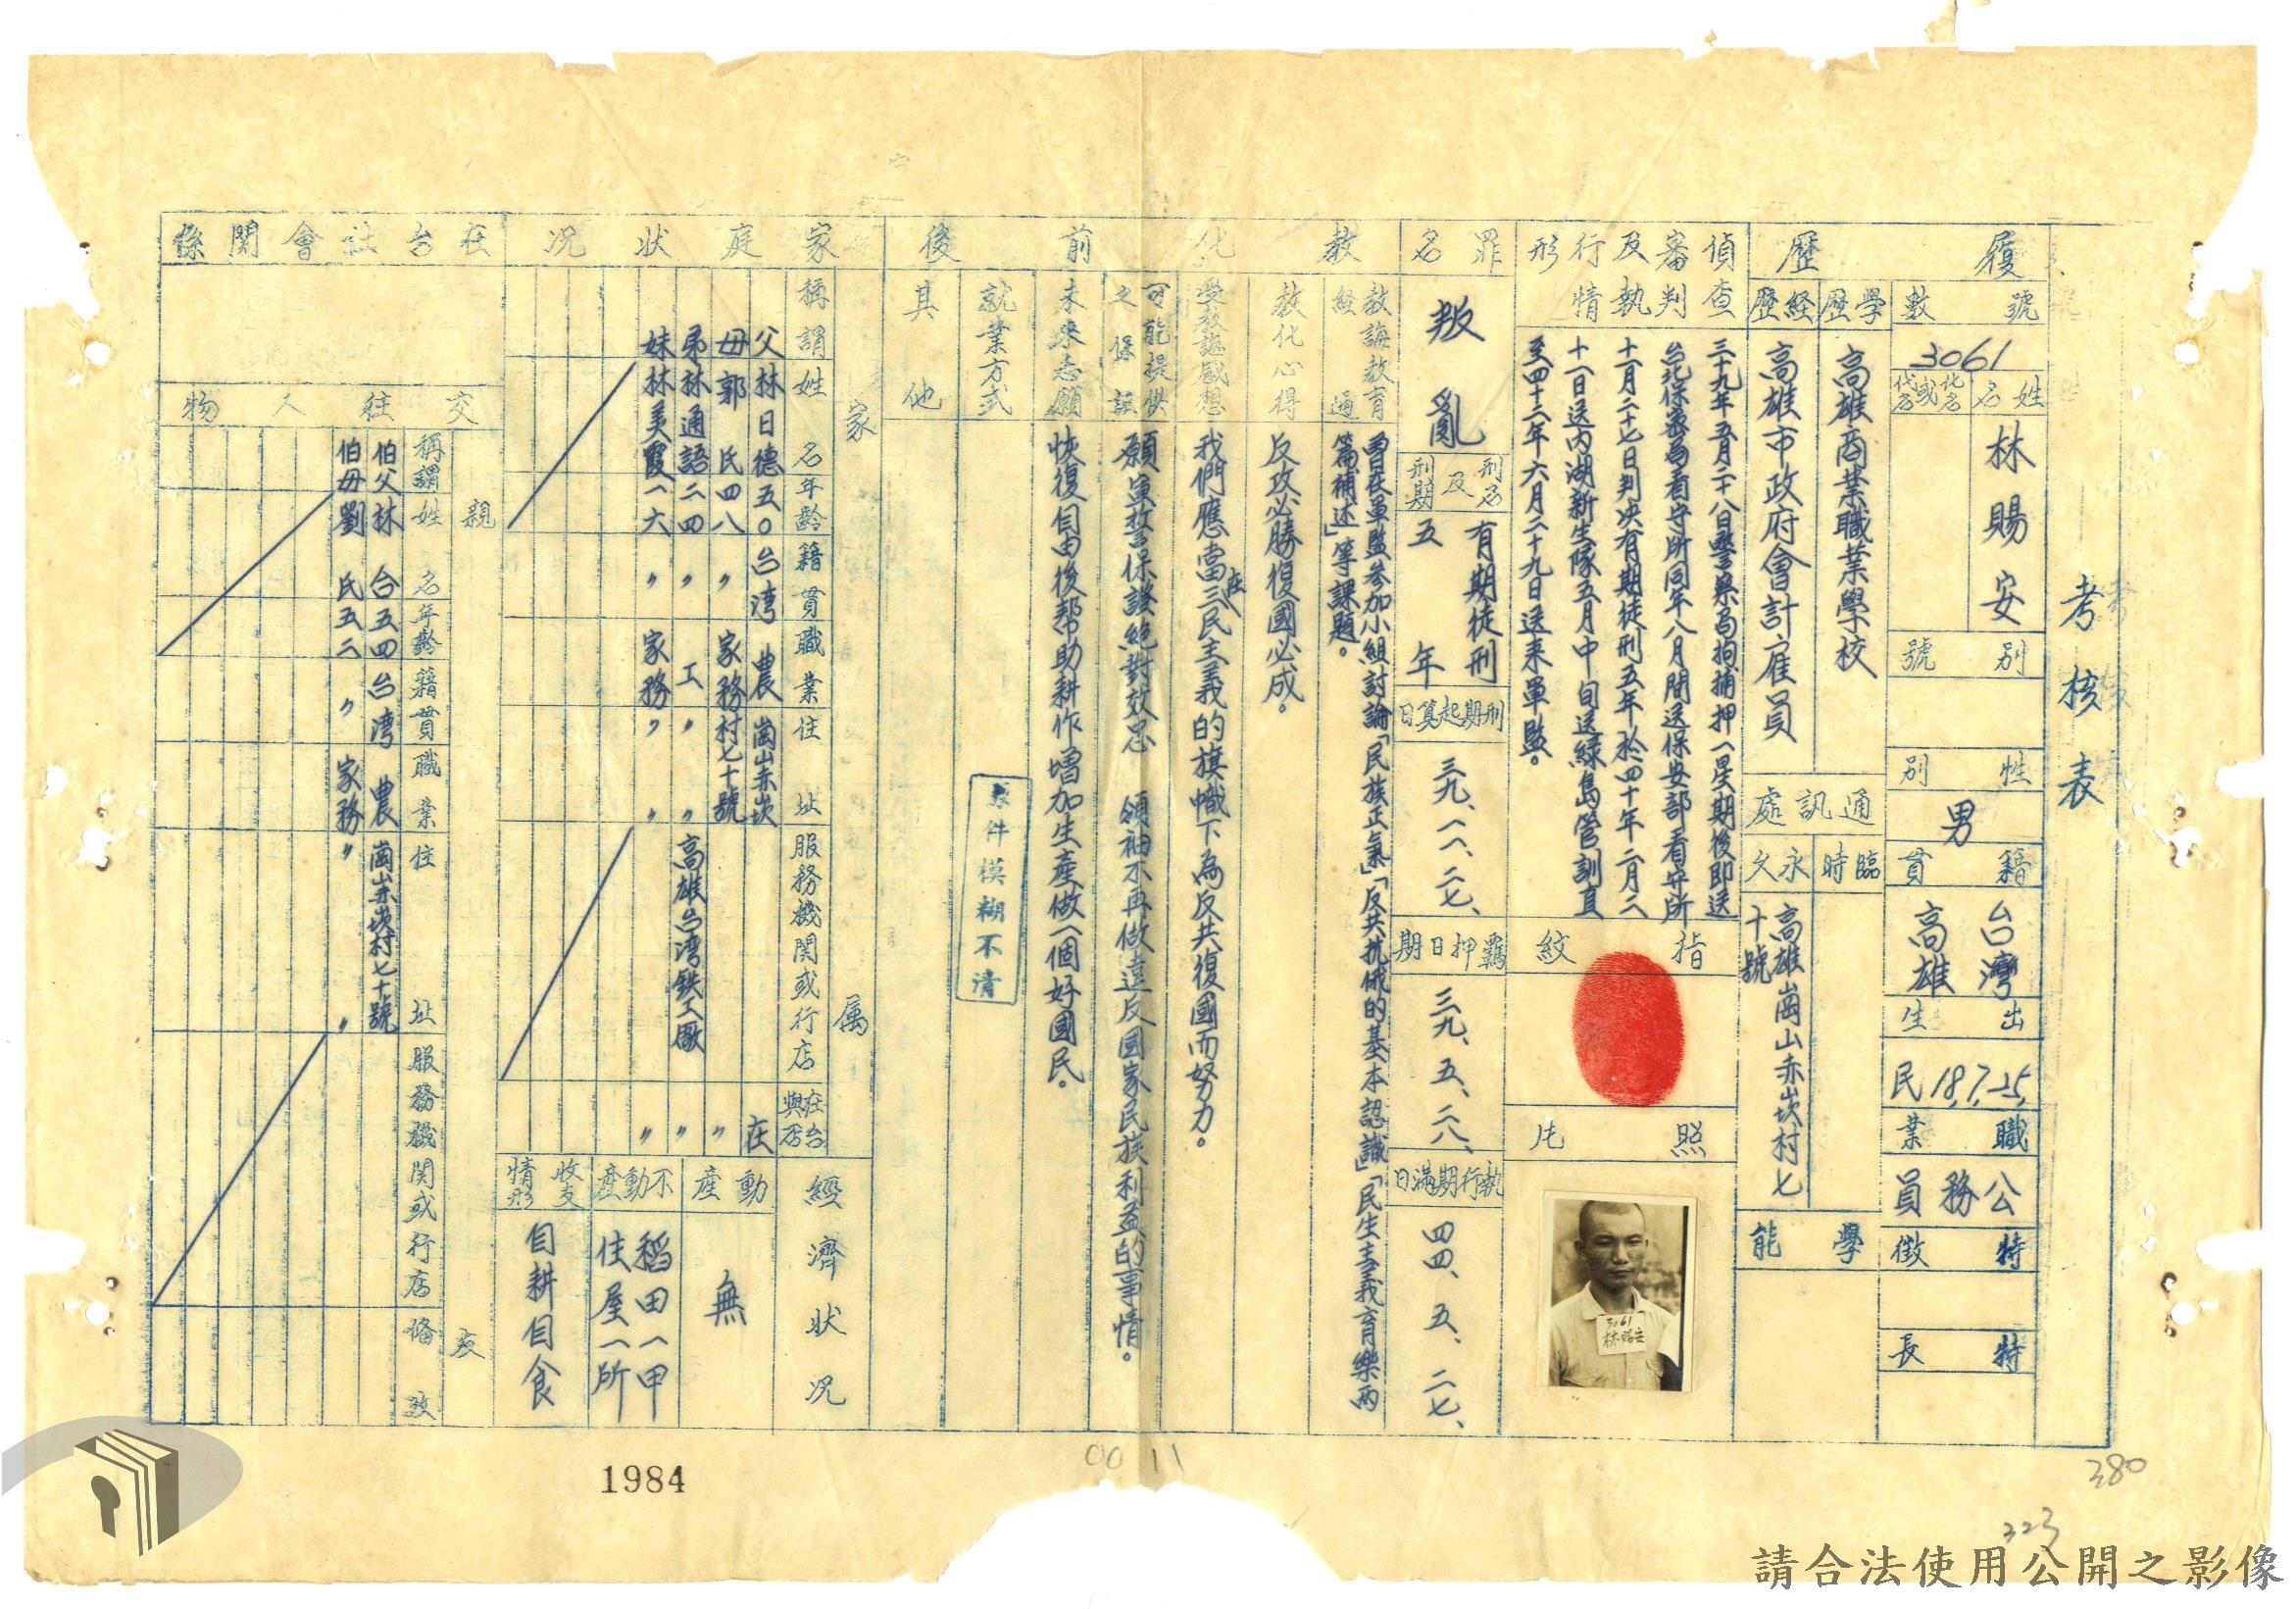 考核表
履歷
號數
3061
姓名
化名或代名
林賜安
別號
性別
男
籍貫
台灣高雄
出生
民18,7,25,
職業
公務員
特徵
特長
學歷
高雄商業職業學校
經歷
高雄市政府會計雇員
通訊處
臨時
永久
高雄崗山赤崁村七
十號
學能
偵查審判及執行情形
三十九年五月二十八日警察局拘捕押一星期後即送
台北保密局看守所同年八月間送保安部看守所
十一月二十七日判决有期徒刑五年於四十年二月二
十一日送內湖新生隊五月中旬送綠島管訓直
至四十二年六月二十九日送來軍監。
指紋
照片
3061
林賜安
罪名
叛亂
刑名及刑期
有期徒刑
五年
刑期起算日
三九、一一、二七、
羈押日期
三九、五、二八、
執行期滿日
四四、五、二七、
教化前後
教誨教育經過
曾在軍監參加小組討論「民族正氣」「反共抗俄的基本認識」「民生主義育樂兩
篇補述」等課題。
教化心得
反攻必勝復國必成。
受教誨感想
我們應當在三民主義的旗幟下為反共復國而努力。
可能提供之保証
願宣誓保證絕對效忠 領袖不再做違反國家民族利益的事情。
未來志願
恢復自由後幫助耕作增加生產做一個好國民。
就業方式
原件模糊不清
其他
家庭狀況
家屬
稱謂 姓名 年齡 籍貫 職業 住址 服務機関或行店 在台與否
父 林日德 五〇 台湾 農 崗山赤崁 在
母 郭氏 四八 〃 家務 村七十號 〃
弟 林通語 二四 〃 工 〃 〃 高雄台湾鉄工廠 〃
妹 林美霞 一六 〃 家務 〃 〃 〃
經濟狀況
動產
無
不動產
稻田一甲
住屋一所
收支情形
自耕自食
在台社會関係
交往人物
親友
稱謂 姓名 年齡 籍貫 職業 住址 服務機関或行店 備攷
伯父 林台 五四 台湾 農 崗山赤崁村七十號
伯母 劉氏 五二 〃 家務 〃 〃
1984
0011
380
323
請合法使用公開之影像